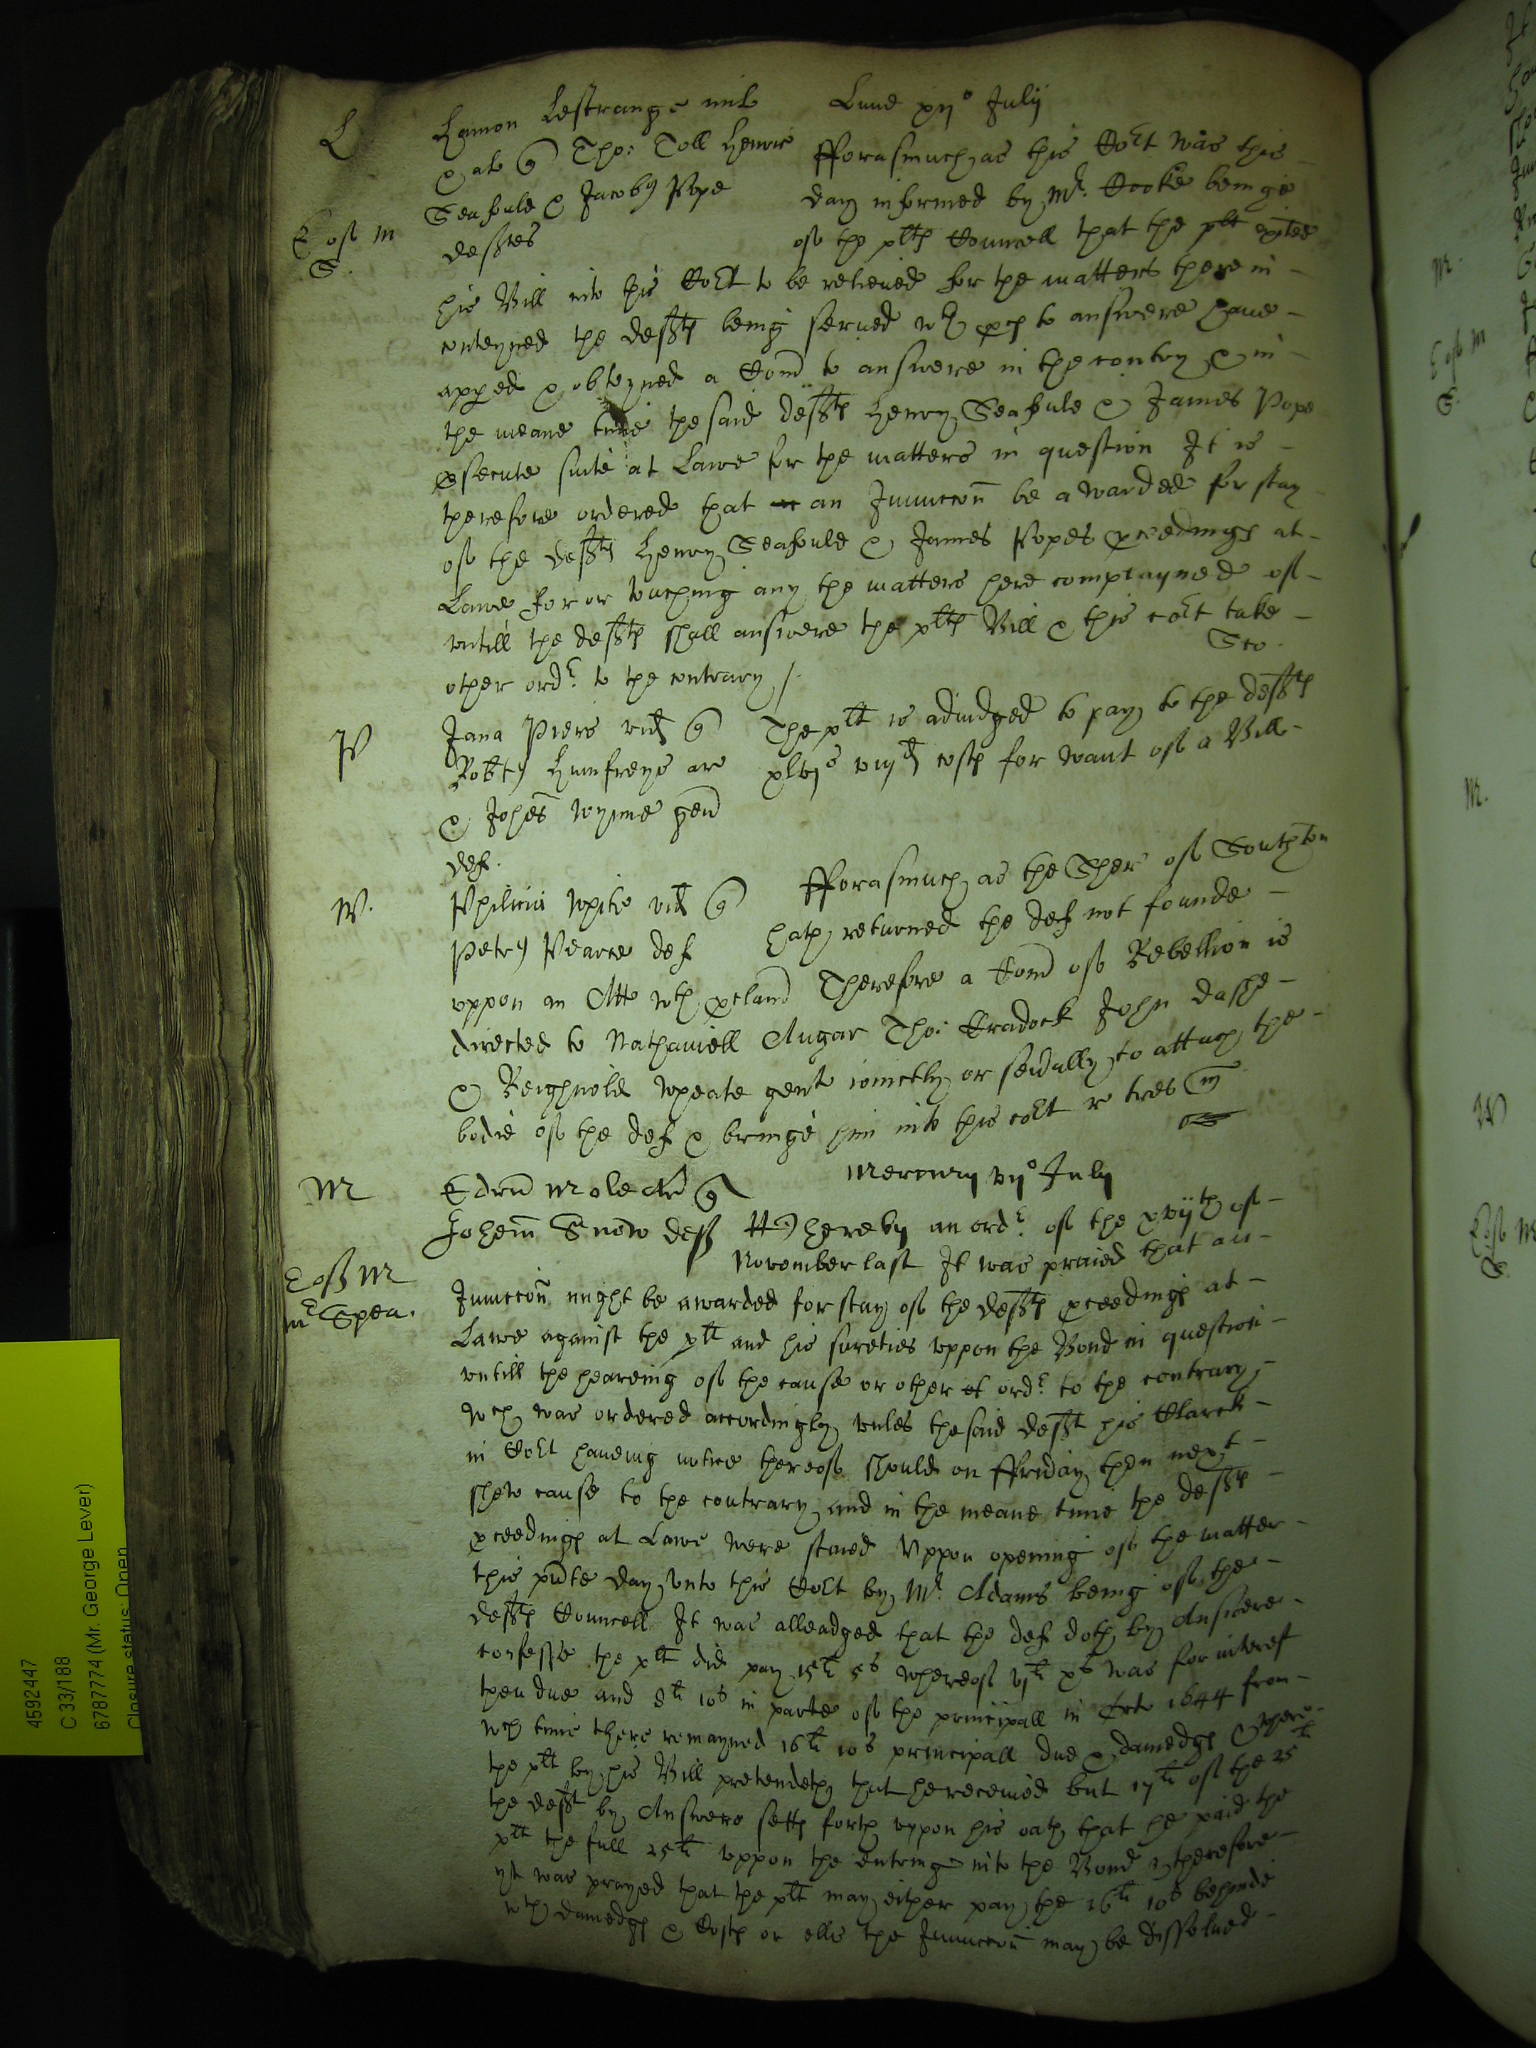 L
Hamon Lestrange mil Lune xij° Julij
& al q Tho: Toll Henric
Seafoule & Jacobu Pope
deftes
E of M
S.
fforasmuch as this Co:rt was this
day informed by Mr. Cooke being
of the plts Councell that the plt exhted
his Bill into this Co:rt to be releived for the matters therein
conteyned the defts being served wth pces to answere have
apped & obteyned a Com to answere in the contry & in
the meane time the said defts Henry Seafoule & James Pope
psecute suite at Lawe for the matters in question It is
therefore ordered that an Iniunccon be awarded for stay
of the defts Henry Seafoule & James Popes pceedings at
Lawe for or touching any the matters here complayned of
untill the defts shall answere the plts Bill & this co:rt take
other ordr to the contrary /.
P
Jana Piers vid q
Robtu Humfreys ar
& Johes Wynne gen
def.
The plt is adiudged to pay to the defts
xlvjs viijd costs for want of a Bill
W.
Philicia White vid q
Petru Pearce def
fforasmuch as the Sher of Southton
hath returned the def not founde
uppon an Att wth pclam Therefore a Com of Rebellion is
directed to Nathaniell Augar Tho: Cradock John Dashe
& Reighnold Wheate gent iointly or sevally to attach the
bodie of the def & bringe him into this co:rt
M
Edrus Mole Ar q
Johem Snow deft
Mercury vij° July
E of M
mr Spen.
Whereby an ordr of the xvijth of
November last It was praied that an
Iniunccon might be awarded for stay of the defts pceedings at
Lawe against the plt and his sureties uppon the Bond in question
untill the heareing of the cause or other ordr to the contrary
wch was ordered accordingly unles the said deft his Clarck
in Co:rt haveing notice thereof should on ffriday then next
shew cause to the contrary and in the meane time the defts
pceedings at Lawe were staied Uppon opening of the matter
this pnte day unto this Co:rt by Mr. Adams being of the
defts Councell It was alleadged that the def doth by Answere
confesse the plt did pay 15li 5s whereof vjli xvs was for interest
then due and 8li 10s in parte of the principall in 1644 from
wch time there remayned 16li 10s principall due & damedgs & where
the plt by his Bill pretendeth that he received but 17li of the 25li
the deft by Answere setts forth uppon his oath that he paid the
plt the full 25li uppon the entring into the Bond & therefore
yt was prayed that the plt may either pay the 16li 10s behynde
wth damedgs & Costs or else the Iniunccon may be dissolved
4592447
C 33/188
6787774 (Mr. George Lever)
Closure status: Open